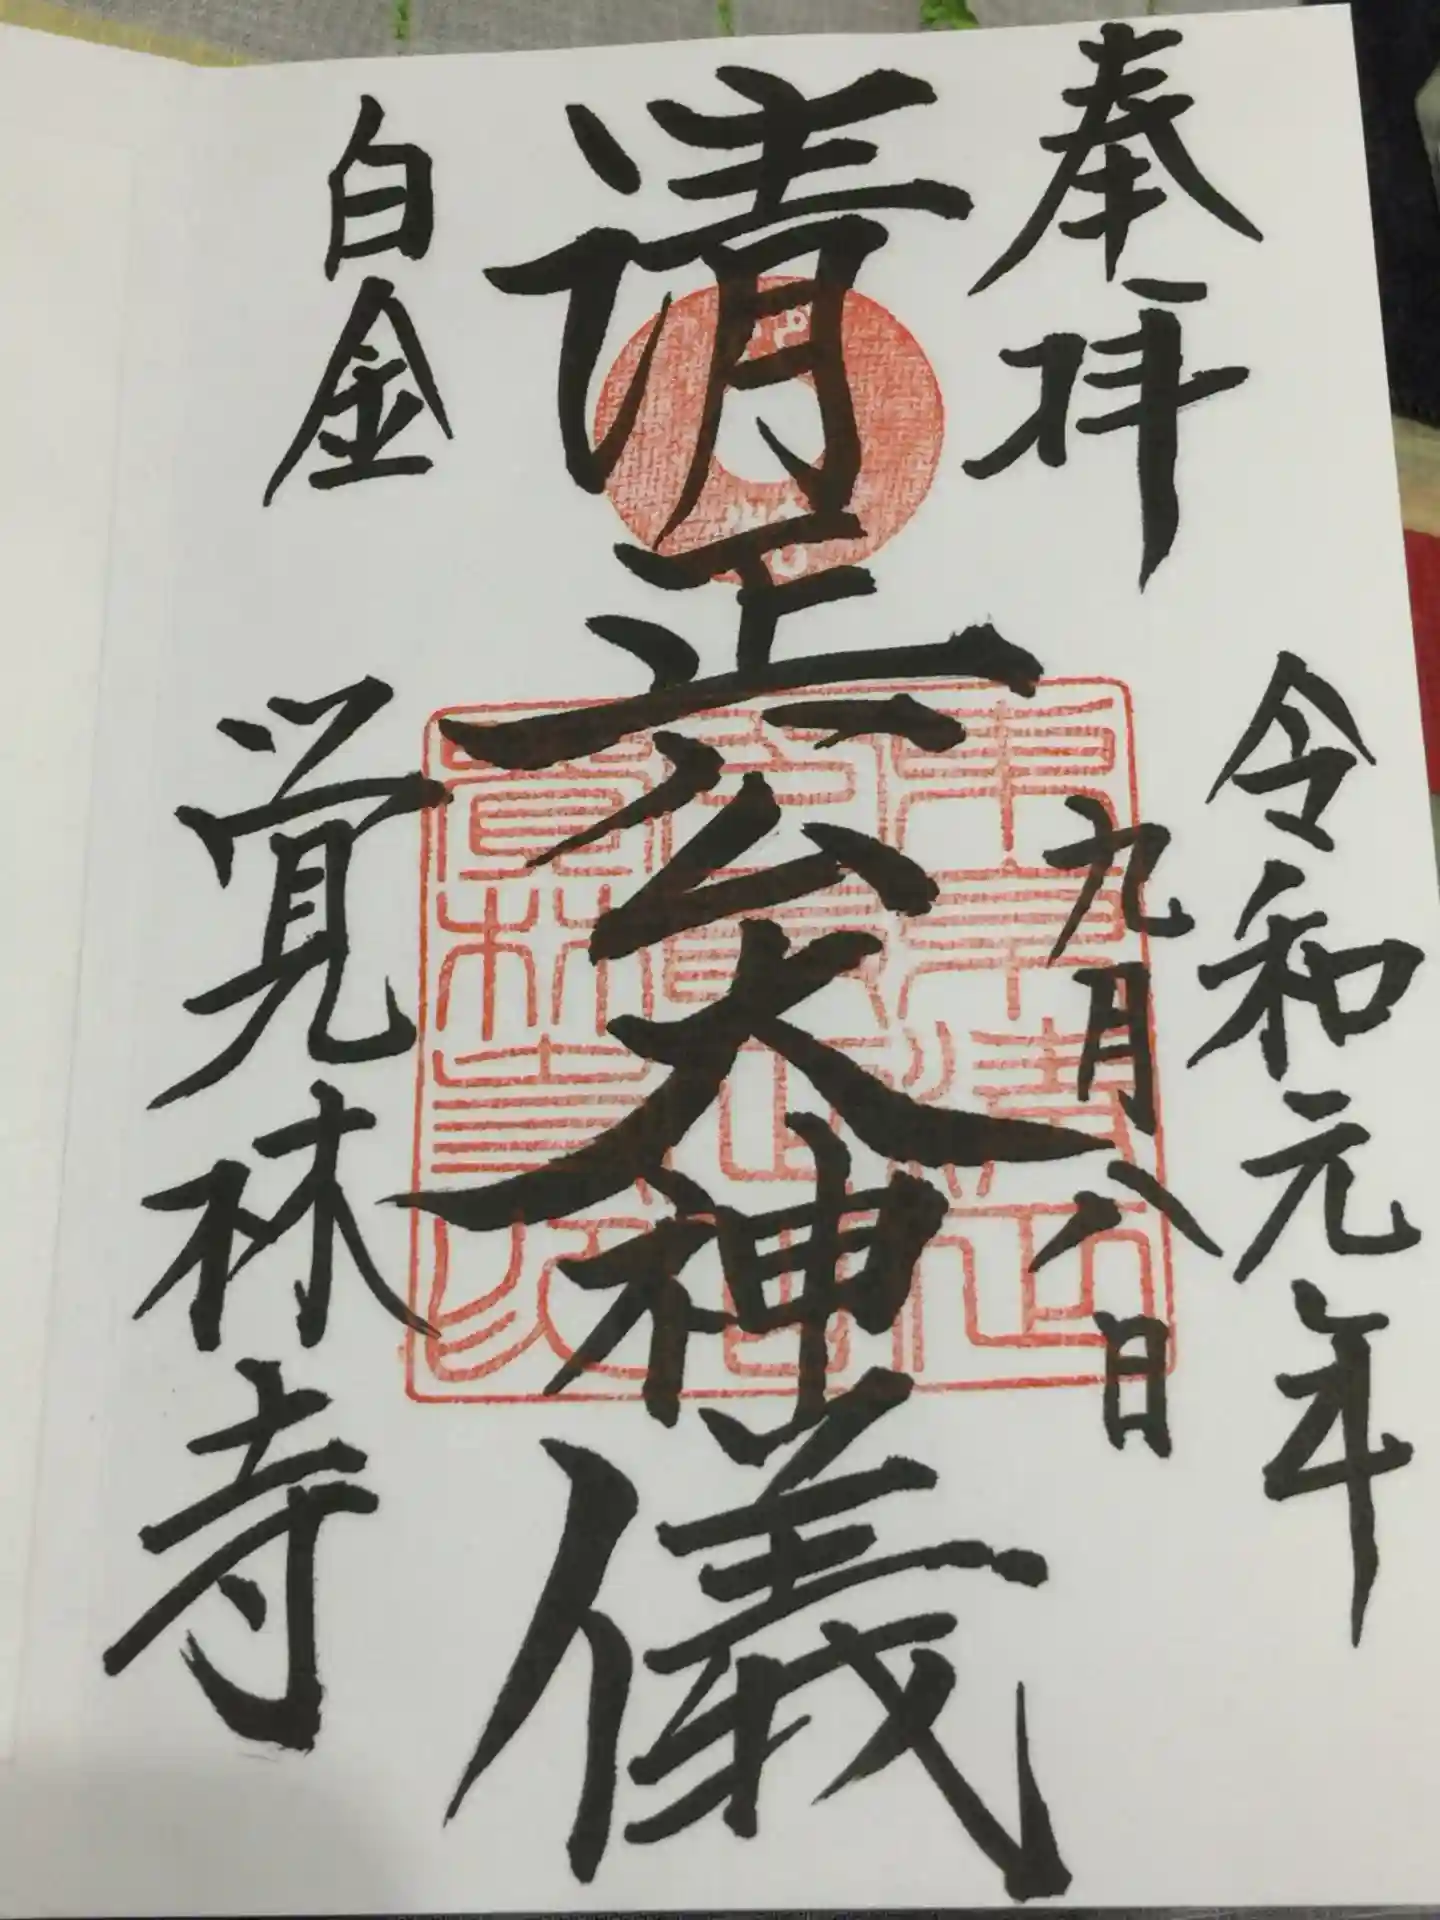 奉拝
令和元年
九月八日
清正公大神儀
白金
覚林寺